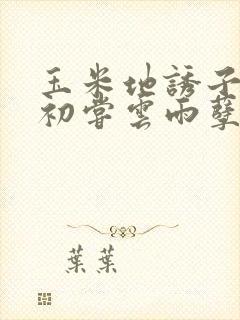 玉米地誘子
初嘗雲雨孽
葉葉